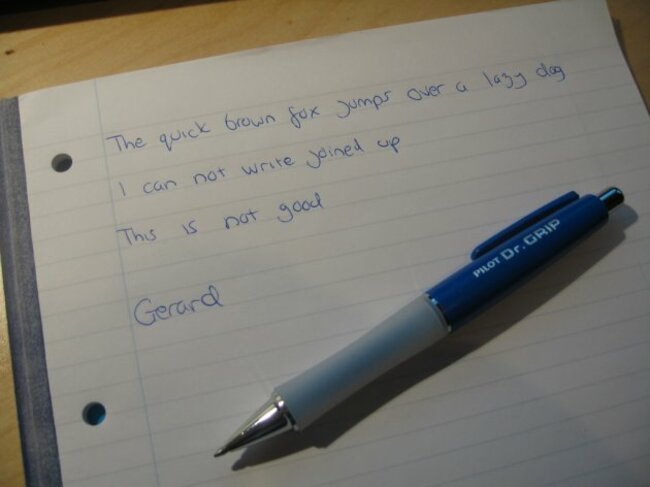 The quick brown fox jumps over a lazy dog
I can not write joined up
This is not good
Gerard
PILOT Dr. GRIP